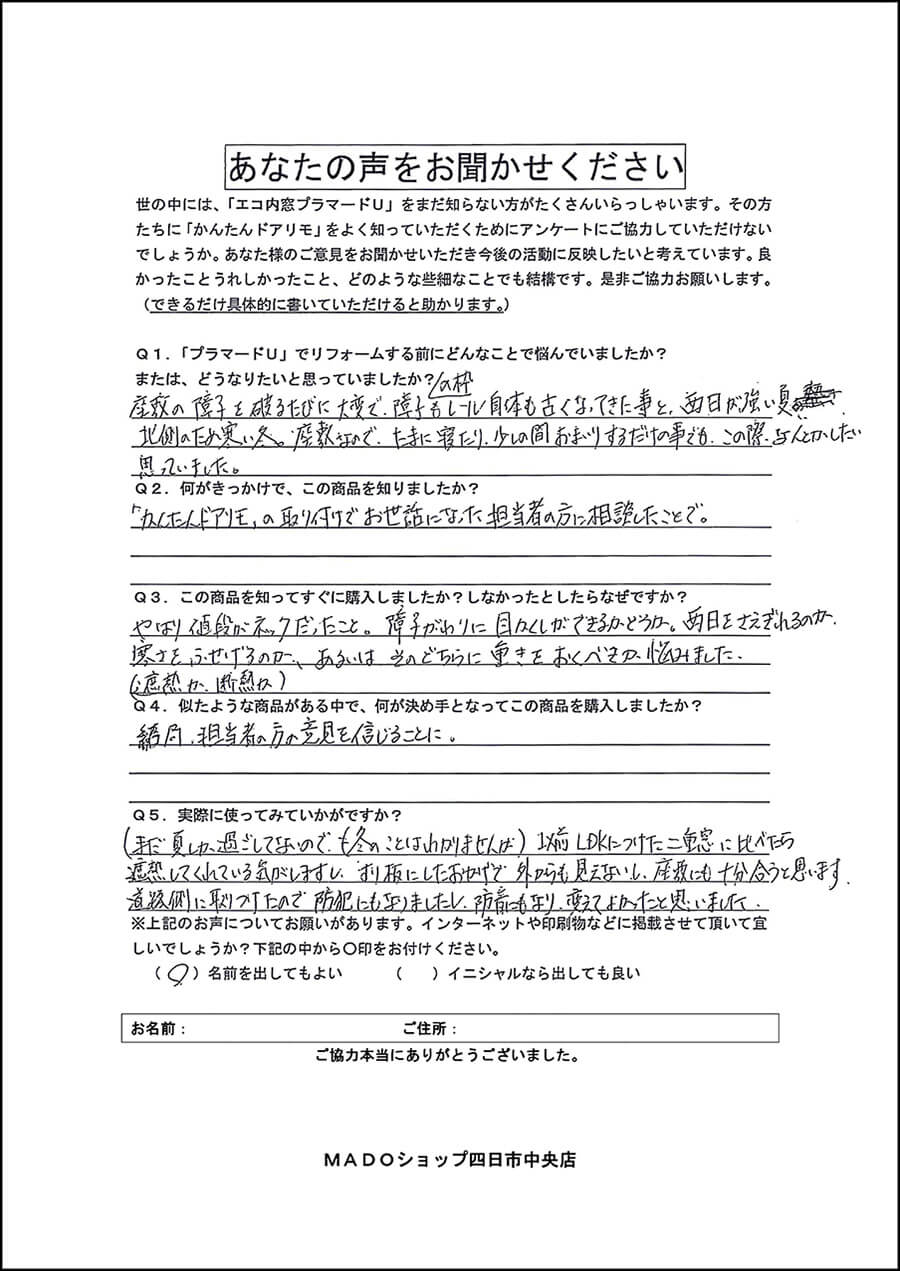 あなたの声をお聞かせください
世の中には、「エコ内窓プラマードU」をまだ知らない方がたくさんいらっしゃいます。その方
たちに「かんたんドアリモ」をよく知っていただくためにアンケートにご協力していただけない
でしょうか。あなた様のご意見をお聞かせいただき今後の活動に反映したいと考えています。良
かったことうれしかったこと、どのような些細なことでも結構です。是非ご協力お願いします。
(できるだけ具体的に書いていただけると助かります。)
Q1.「プラマードU」でリフォームする前にどんなことで悩んでいましたか?
または、どうなりたいと思っていましたか?
の枠
座敷の障子を破るたびに大変で、障子もレール自体も古くなってきた事と、西日が強い夏、
北側のため寒い冬。座敷なので、たまに寝たり、少しの間おまいりするだけの事でも、この際、なんとかしたい
思っていました。
Q2.何がきっかけで、この商品を知りましたか?
「かんたんドアリモ」の取り付けでお世話になった担当者の方に相談したことで。
Q3.この商品を知ってすぐに購入しましたか?しなかったとしたらなぜですか?
やはり値段がネックだったこと。障子がわりに目かくしができるかどうか。西日をさえぎれるのか、
寒さをふせげるのか、あるいは そのどちらに重きをおくべきか悩みました。
(遮熱か、断熱か)
Q4.似たような商品がある中で、何が決め手となってこの商品を購入しましたか?
結局、担当者の方の意見を信じることに。
Q5.実際に使ってみていかがですか?
(まだ夏しか過ごしてないので、冬のことはわかりませんが) 以前LDKにつけた二重窓に比べたら
遮熱してくれている気がしますし、すり板にしたおかげで外からも見えないし、座敷にも十分合うと思います。
道路側に取りつけたので防犯にもなりましたし、防音にもなり、変えてよかったと思いました。
※上記のお声についてお願いがあります。インターネットや印刷物などに掲載させて頂いて宜
しいでしょうか?下記の中から○印をお付けください。
(○)名前を出してもよい ( )イニシャルなら出しても良い
お名前: ご住所:
ご協力本当にありがとうございました。
MADOショップ四日市中央店